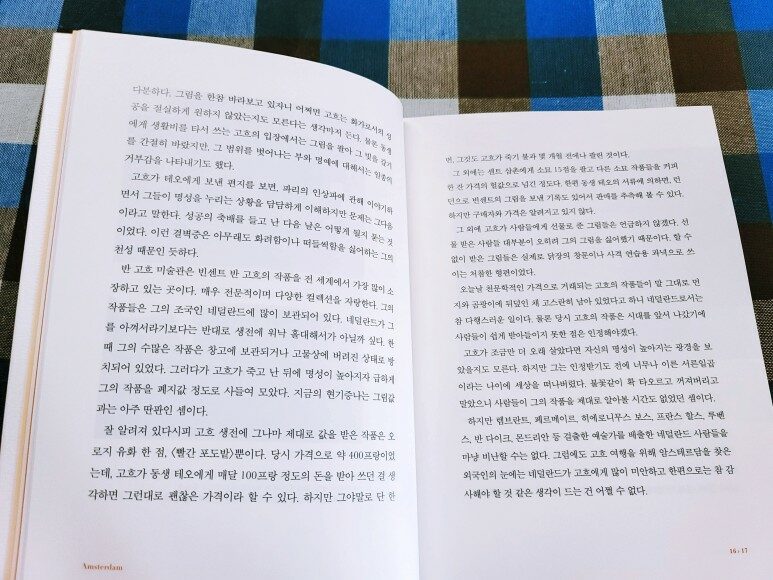 다분하다. 그림을 한참 바라보고 있자니 어쩌면 고흐는 화가로서의 성
공을 절실하게 원하지 않았는지도 모른다는 생각마저 든다. 물론 동생
에게 생활비를 타서 쓰는 고흐의 입장에서는 그림을 팔아 그 빚을 갚기
를 간절히 바랐지만, 그 범위를 벗어나는 부와 명예에 대해서는 일종의
거부감을 나타내기도 했다.
고흐가 테오에게 보낸 편지를 보면, 파리의 인상파에 관해 이야기하
면서 그들이 명성을 누리는 상황을 담담하게 이해하지만 문제는 그다음
이라고 말한다. 성공의 축배를 들고 난 다음 날은 어떻게 될지 묻는 것
이었다. 이런 결벽증은 아무래도 화려함이나 떠들썩함을 싫어하는 그의
천성 때문인 듯하다.
반 고흐 미술관은 빈센트 반 고흐의 작품을 전 세계에서 가장 많이 소
장하고 있는 곳이다. 매우 전문적이며 다양한 컬렉션을 자랑한다. 그의
작품들은 그의 조국인 네덜란드에 많이 보관되어 있다. 네덜란드가 그
를 아껴서라기보다는 반대로 생전에 워낙 홀대해서가 아닐까 싶다. 한
때 그의 수많은 작품은 창고에 보관되거나 고물상에 버려진 상태로 방
치되어 있었다. 그러다가 고흐가 죽고 난 뒤에 명성이 높아지자 급하게
그의 작품을 폐지값 정도로 사들여 모았다. 지금의 현기증나는 그림값
과는 아주 딴판인 셈이다.
잘 알려져 있다시피 고흐 생전에 그나마 제대로 값을 받은 작품은 오
로지 유화 한 점, 〈빨간 포도밭〉뿐이다. 당시 가격으로 약 400프랑이었
는데, 고흐가 동생 테오에게 매달 100프랑 정도의 돈을 받아 쓰던 걸 생
각하면 그런대로 괜찮은 가격이라 할 수 있다. 하지만 그야말로 단 한
Amsterdam
면, 그것도 고흐가 죽기 불과 몇 개월 전에나 팔린 것이다.
그 외에는 센트 삼촌에게 소묘 15점을 팔고 다른 소묘 작품들을 커피
한 잔 가격의 헐값으로 넘긴 정도다. 한편 동생 테오의 서류에 의하면, 런
던으로 빈센트의 그림을 보낸 기록도 있어서 판매를 추측해 볼 수 있다.
하지만 구매자와 가격은 알려지고 있지 않다.
그 외에 고흐가 사람들에게 선물로 준 그림들은 언급하지 않겠다. 선
물 받은 사람들 대부분이 오히려 그의 그림을 싫어했기 때문이다. 할 수
없이 받은 그림들은 실제로 닭장의 창문이나 사격 연습용 과녁으로 쓰
이는 처참한 형편이었다.
오늘날 천문학적인 가격으로 거래되는 고흐의 작품들이 말 그대로 먼
지와 곰팡이에 뒤덮인 채 고스란히 남아 있었다고 하니 네덜란드로서는
참 다행스러운 일이다. 물론 당시 고흐의 작품은 시대를 앞서 나갔기에
사람들이 쉽게 받아들이지 못한 점은 인정해야겠다.
고흐가 조금만 더 오래 살았다면 자신의 명성이 높아지는 광경을 보
았을지도 모른다. 하지만 그는 인정받기도 전에 너무나 이른 서른일곱
이라는 나이에 세상을 떠나버렸다. 불꽃같이 확 타오르고 꺼져버리고
말았으니 사람들이 그의 작품을 제대로 알아볼 시간도 없었던 셈이다.
하지만 렘브란트, 페르메이르, 히에로니무스 보스, 프란스 할스, 루벤
스, 반 다이크, 몬드리안 등 걸출한 예술가를 배출한 네덜란드 사람들을
마냥 비난할 수는 없다. 그럼에도 고흐 여행을 위해 암스테르담을 찾은
외국인의 눈에는 네덜란드가 고흐에게 많이 미안하고 한편으로는 참 감
사해야 할 것 같은 생각이 드는 건 어쩔 수 없다.
16 · 17